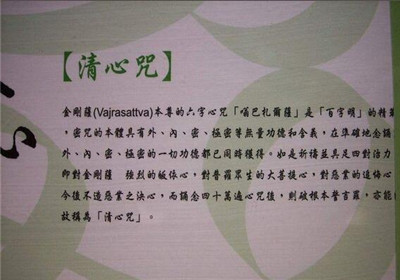 【清心咒】
金剛薩(Vajrasattva)本尊的六字心咒「嗡巴扎爾薩」是「百字頌」的精
，密咒的本體具有外、內、密、極密等無量功德和含義，在準確地念誦
外、內、密、極密的一切功德都已同時獲得。如是祈禱並具足四對治力
即對金剛薩 強烈的皈依心，對普羅眾生的大菩提心，對惡業的追悔心
今後不造惡業之決心，而誦念四十萬遍心咒後，則破根本誓言罪，亦能
故稱為「清心咒」。